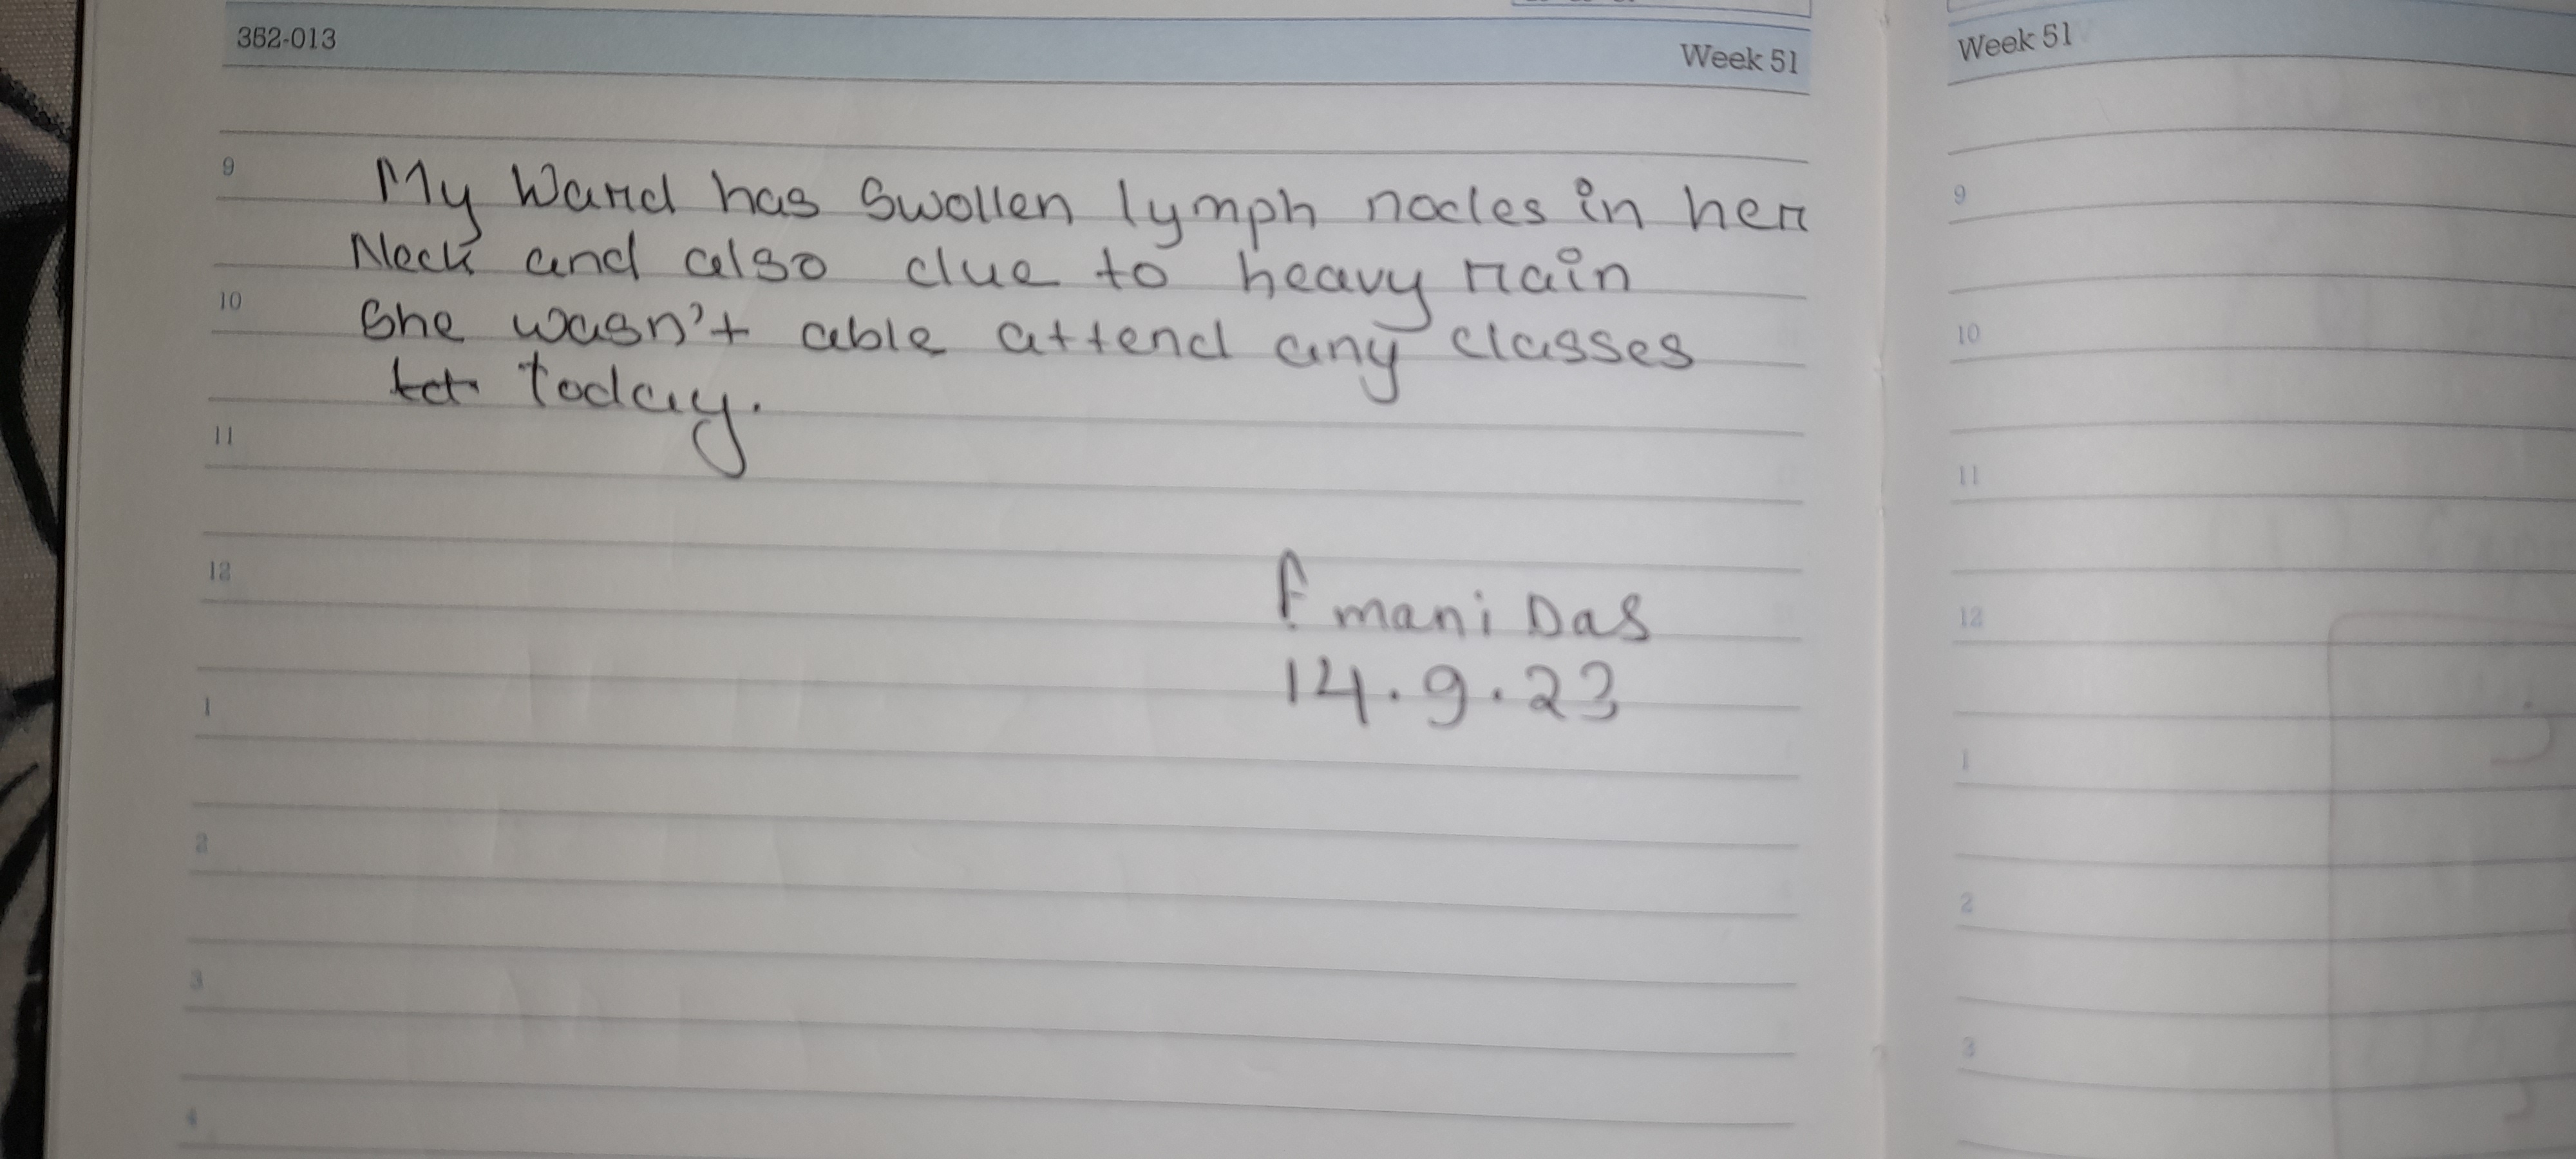 362-013
Week 51
9
My Ward has Swollen lymph nodes in her
Neck and also due to heavy rain
10
She wasn't able attend any classes
today.
11
12
mani Das
14.9.23
1
2
3
4
Week 51
9
10
11
12
1
2
3